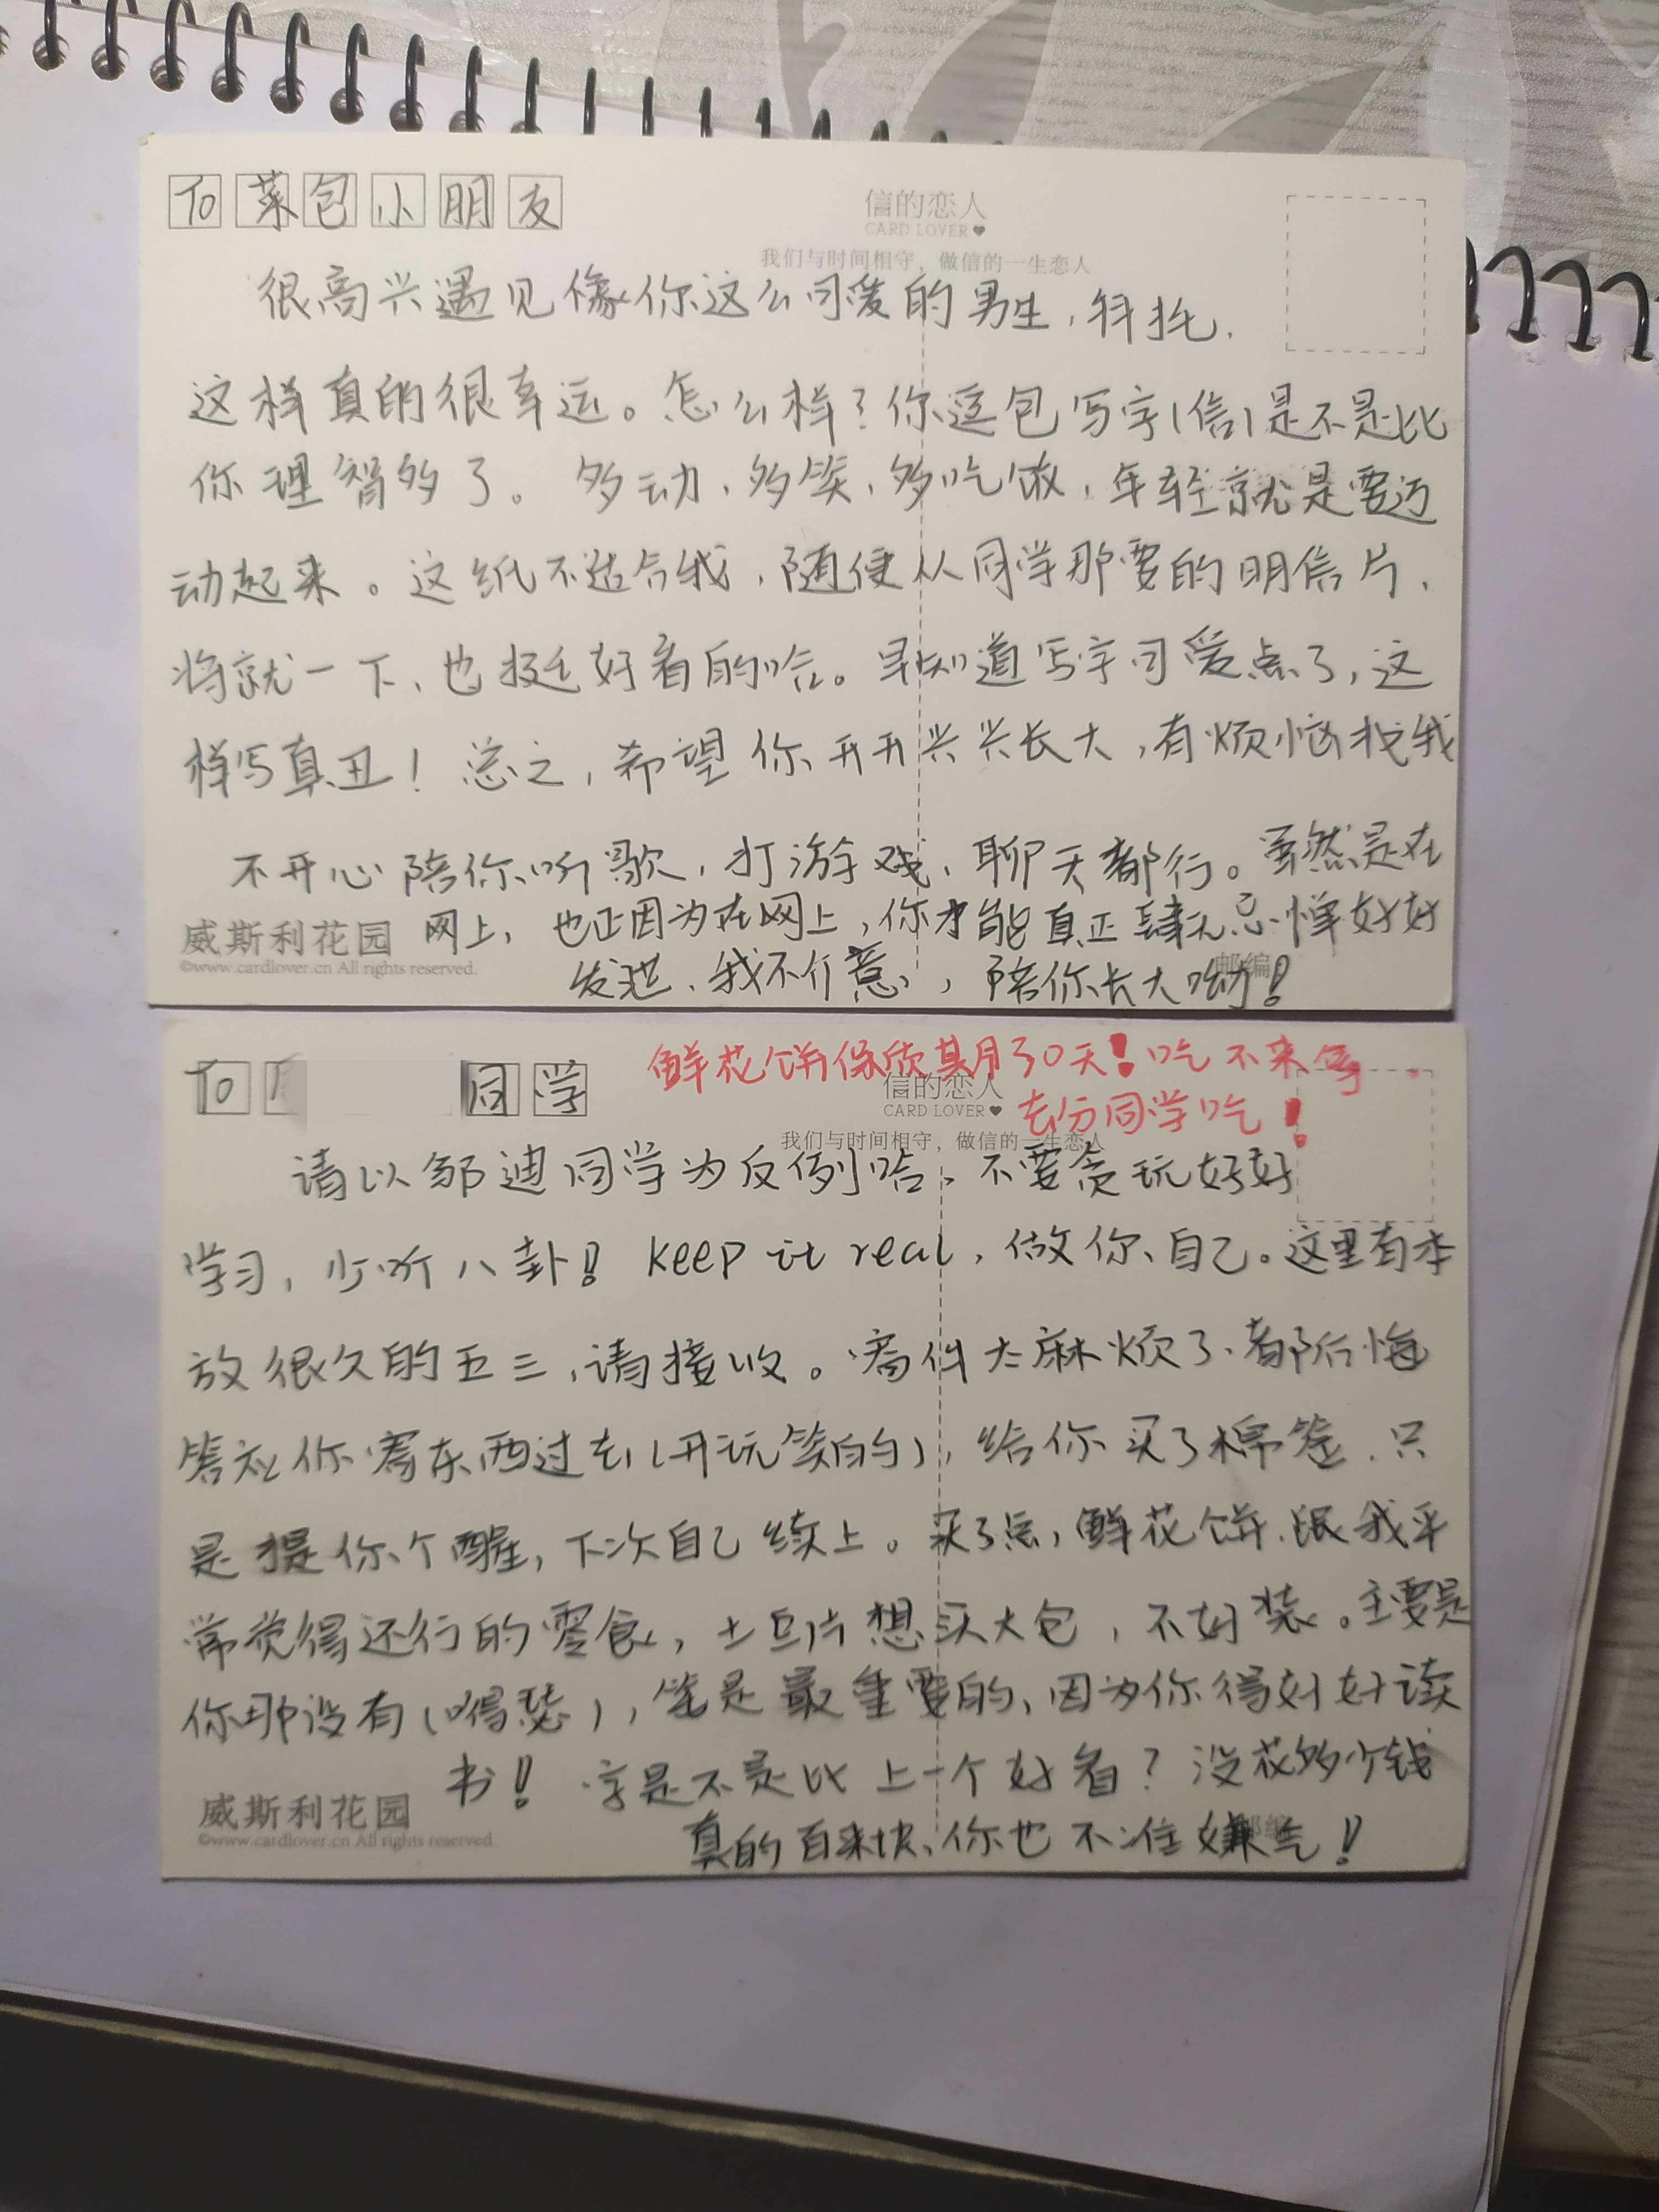 To 菜包小朋友
信的恋人
CARD LOVER
我们与时间相守，做信的一生恋人
很高兴遇见像你这么可爱的男生，拜托.
这样真的很幸运。怎么样？你逗包写字(信)是不是比
你理智多了。多动、多笑、多吃饭，年轻就是要迈
动起来。这纸不适合我，随便从同学那要的明信片，
将就一下、也挺好看的哈。早知道写字可爱点了，这
样写真丑！总之，希望你开开兴兴长大，有烦恼找我
不开心陪你听歌，打游戏、聊天都行。虽然是在
网上，也正因为在网上，你才能真正肆无忌惮好好
威斯利花园
©www.cardlover.cn All rights reserved.
邮编
发泄、我不介意，陪你长大呦！
鲜花饼保质期30天！吃不来
去分同学吃！
To 同学
信的恋人
CARD LOVER
我们与时间相守，做信的一生恋人
请以邹迪同学为反例哈、不要贪玩好好
学习，少听八卦！keep it real，做你自己。这里有本
放很久的五三，请接收。寄件太麻烦了、都后悔
答应你寄东西过去(开玩笑的)，给你买了棉签、只
是提你个醒，下次自己续上。买了点，鲜花饼、跟我平
常觉得还行的零食，土豆片想买大包，不好装。主要是
你那没有(嘚瑟)，笔是最重要的、因为你得好好读
书！字是不是比上一个好看？没花多少钱
威斯利花园
©www.cardlover.cn All rights reserved.
真的百来块、你也不准嫌弃！